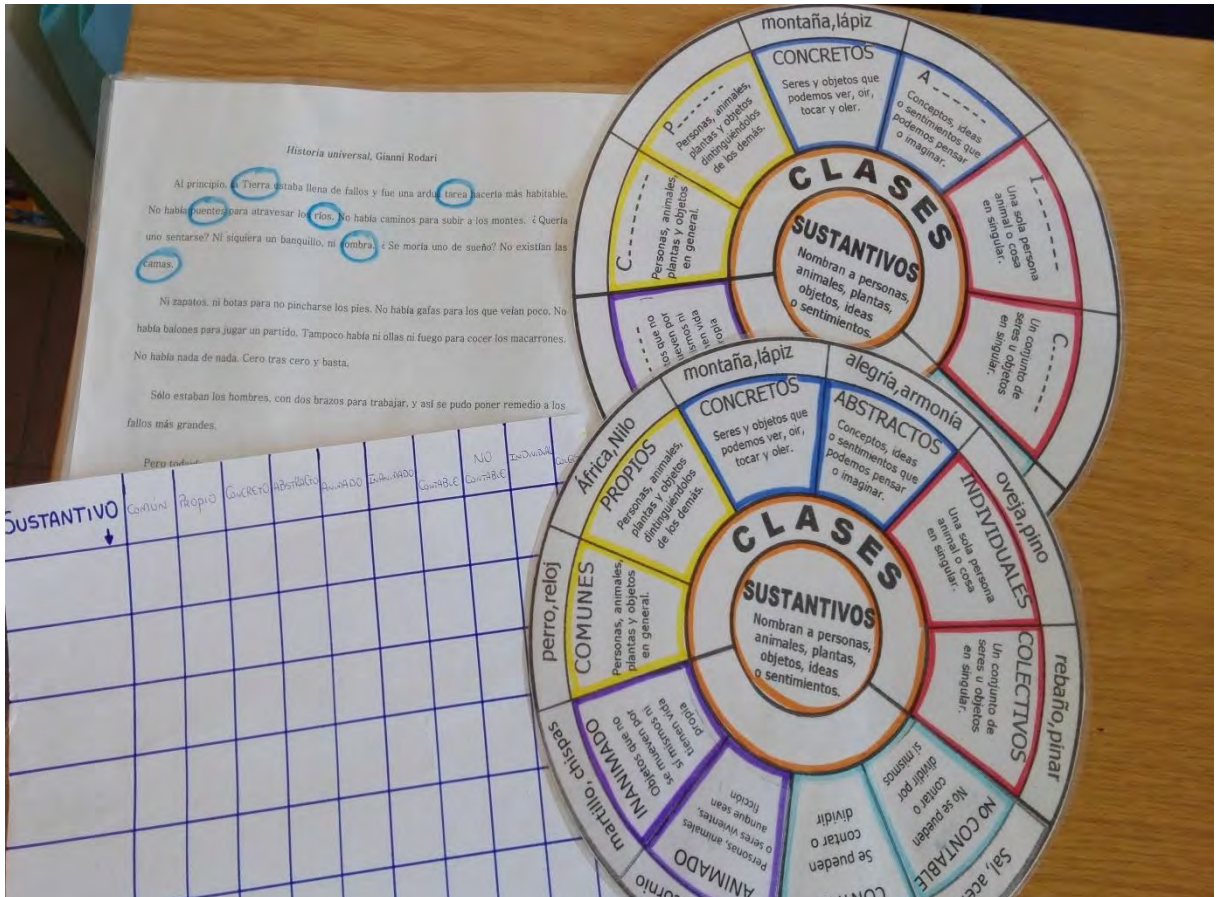 Historia universal, Gianni Rodari
Al principio, la Tierra estaba llena de fallos y fue una ardua tarea hacerla más habitable.
No había puentes para atravesar los ríos. No había caminos para subir a los montes. ¿Quería
uno sentarse? Ni siquiera un banquillo, ni sombra. ¿Se moría uno de sueño? No existían las
camas.
Ni zapatos, ni botas para no pincharse los pies. No había gafas para los que veían poco. No
había balones para jugar un partido. Tampoco había ni ollas ni fuego para cocer los macarrones.
No había nada de nada. Cero tras cero y basta.
Sólo estaban los hombres, con dos brazos para trabajar, y así se pudo poner remedio a los
fallos más grandes.
Pero
SUSTANTIVO
COMÚN
PROPIO
CONCRETO
ABSTRACTO
ANIMADO
INANIMADO
CONTABLE
NO
CONTABLE
INDIVIDUAL
montaña,lápiz
CONCRETOS
Seres y objetos que
podemos ver, oir,
tocar y oler.
A------
Conceptos, ideas
o sentimientos que
podemos pensar
o imaginar.
I---------
Una sola persona
animal o cosa
en singular.
C--------
Un conjunto de
seres u objetos
en singular.
P------
Personas, animales,
plantas y objetos
dintinguiéndolos
de los demás.
C------
Personas, animales,
plantas y objetos
en general.
los que no
ueven por
ismos ni
nen vida
ropia
CLASES
SUSTANTIVOS
Nombran a personas,
animales, plantas,
objetos, ideas
o sentimientos.
montaña,lápiz
CONCRETOS
Seres y objetos que
podemos ver, oir,
tocar y oler.
alegría,armonía
ABSTRACTOS
Conceptos, ideas
o sentimientos que
podemos pensar
o imaginar.
oveja,pino
INDIVIDUALES
Una sola persona
animal o cosa
en singular.
rebaño,pinar
COLECTIVOS
Un conjunto de
seres u objetos
en singular.
Sal, ace
NO CONTABLE
No se pueden
contar o
dividir por
si mismos
CONT
Se pueden
contar o
dividir
ornio
ANIMADO
Personas, animales,
o seres vivientes,
aunque sean
ficción
martillo, chispas
INANIMADO
Objetos que no
se mueven por
sí mismos ni
tienen vida
propia
perro,reloj
COMUNES
Personas, animales,
plantas y objetos
en general.
África,Nilo
PROPIOS
Personas, animales,
plantas y objetos
dintinguiéndolos
de los demás.
CLASES
SUSTANTIVOS
Nombran a personas,
animales, plantas,
objetos, ideas
o sentimientos.